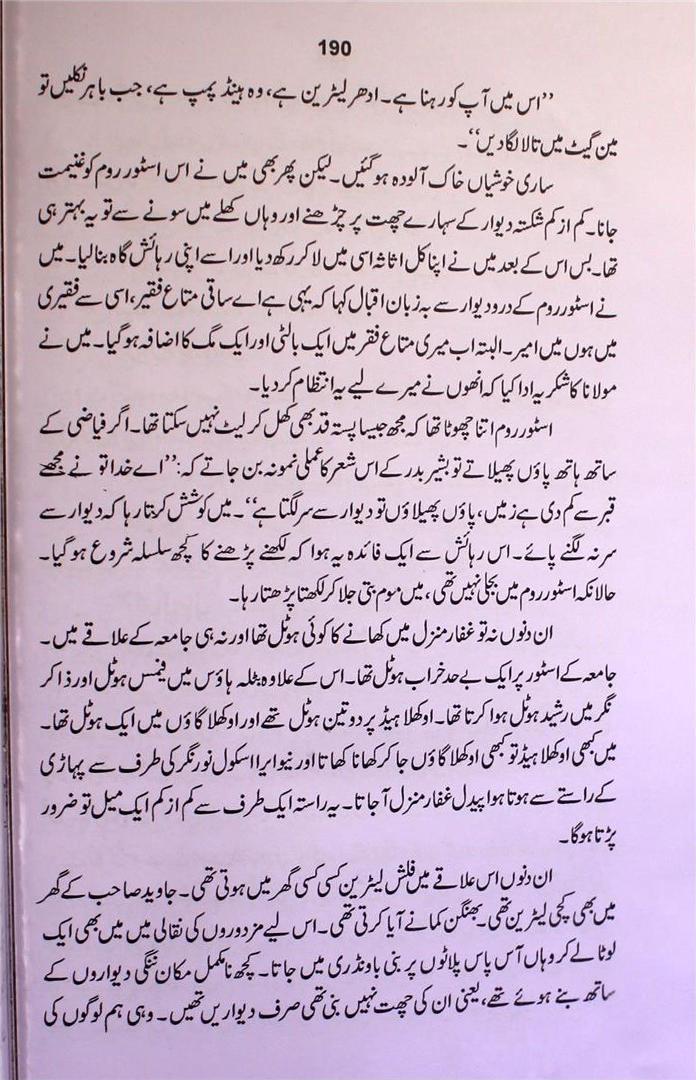 190
”اس میں آپ کو رہنا ہے۔ ادھر لیٹرین ہے، وہ ہینڈ پمپ ہے، جب باہر نکلیں تو
مین گیٹ میں تالا لگا دیں“۔
ساری خوشیاں خاک آلودہ ہو گئیں۔ لیکن پھر بھی میں نے اس اسٹور روم کو غنیمت
جانا۔ کم از کم شکستہ دیوار کے سہارے چھت پر چڑھنے اور وہاں کھلے میں سونے سے تو یہ بہتر ہی
تھا۔ بس اس کے بعد میں نے اپنا کل اثاثہ اسی میں لا کر رکھ دیا اور اسے اپنی رہائش گاہ بنا لیا۔ میں
نے اسٹور روم کے در و دیوار سے بہ زبان اقبال کہا کہ یہی ہے اے ساقی متاع فقیر، اسی سے فقیری
میں ہوں میں امیر۔ البتہ اب میری متاع فقر میں ایک بالٹی اور ایک مگ کا اضافہ ہو گیا۔ میں نے
مولانا کا شکریہ ادا کیا کہ انھوں نے میرے لیے یہ انتظام کر دیا۔
اسٹور روم اتنا چھوٹا تھا کہ مجھ جیسا پستہ قد بھی کھل کر لیٹ نہیں سکتا تھا۔ اگر فیاضی کے
ساتھ ہاتھ پاؤں پھیلاتے تو بشیر بدر کے اس شعر کا عملی نمونہ بن جاتے کہ: ”اے خدا تو نے مجھے
قبر سے کم دی ہے زمیں، پاؤں پھیلاؤں تو دیوار سے سر لگتا ہے“۔ میں کوشش کرتا رہا کہ دیوار سے
سر نہ لگنے پائے۔ اس رہائش سے ایک فائدہ یہ ہوا کہ لکھنے پڑھنے کا کچھ سلسلہ شروع ہو گیا۔
حالانکہ اسٹور روم میں بجلی نہیں تھی، میں موم بتی جلا کر لکھتا پڑھتا رہا۔
ان دنوں نہ تو غفار منزل میں کھانے کا کوئی ہوٹل تھا اور نہ ہی جامعہ کے علاقے میں۔
جامعہ کے اسٹور پر ایک بے حد خراب ہوٹل تھا۔ اس کے علاوہ بٹلہ ہاؤس میں فیمس ہوٹل اور ذاکر
نگر میں رشید ہوٹل ہوا کرتا تھا۔ اوکھلا ہیڈ پر دو تین ہوٹل تھے اور اوکھلا گاؤں میں ایک ہوٹل تھا۔
میں کبھی اوکھلا ہیڈ تو کبھی اوکھلا گاؤں جا کر کھانا کھاتا اور نیو ایرا اسکول نور نگر کی طرف سے پہاڑی
کے راستے سے ہوتا ہوا پیدل غفار منزل آ جاتا۔ یہ راستہ ایک طرف سے کم از کم ایک میل تو ضرور
پڑتا ہوگا۔
ان دنوں اس علاقے میں فلش لیٹرین کسی کسی گھر میں ہوتی تھی۔ جاوید صاحب کے گھر
میں بھی کچی لیٹرین تھی۔ بھنگن کمانے آیا کرتی تھی۔ اس لیے مزدوروں کی نقالی میں میں بھی ایک
لوٹا لے کر وہاں آس پاس پلاٹوں پر بنی باونڈری میں جاتا۔ کچھ نامکمل مکان ننگی دیواروں کے
ساتھ بنے ہوئے تھے، یعنی ان کی چھت نہیں بنی تھی صرف دیواریں تھیں۔ وہی ہم لوگوں کی